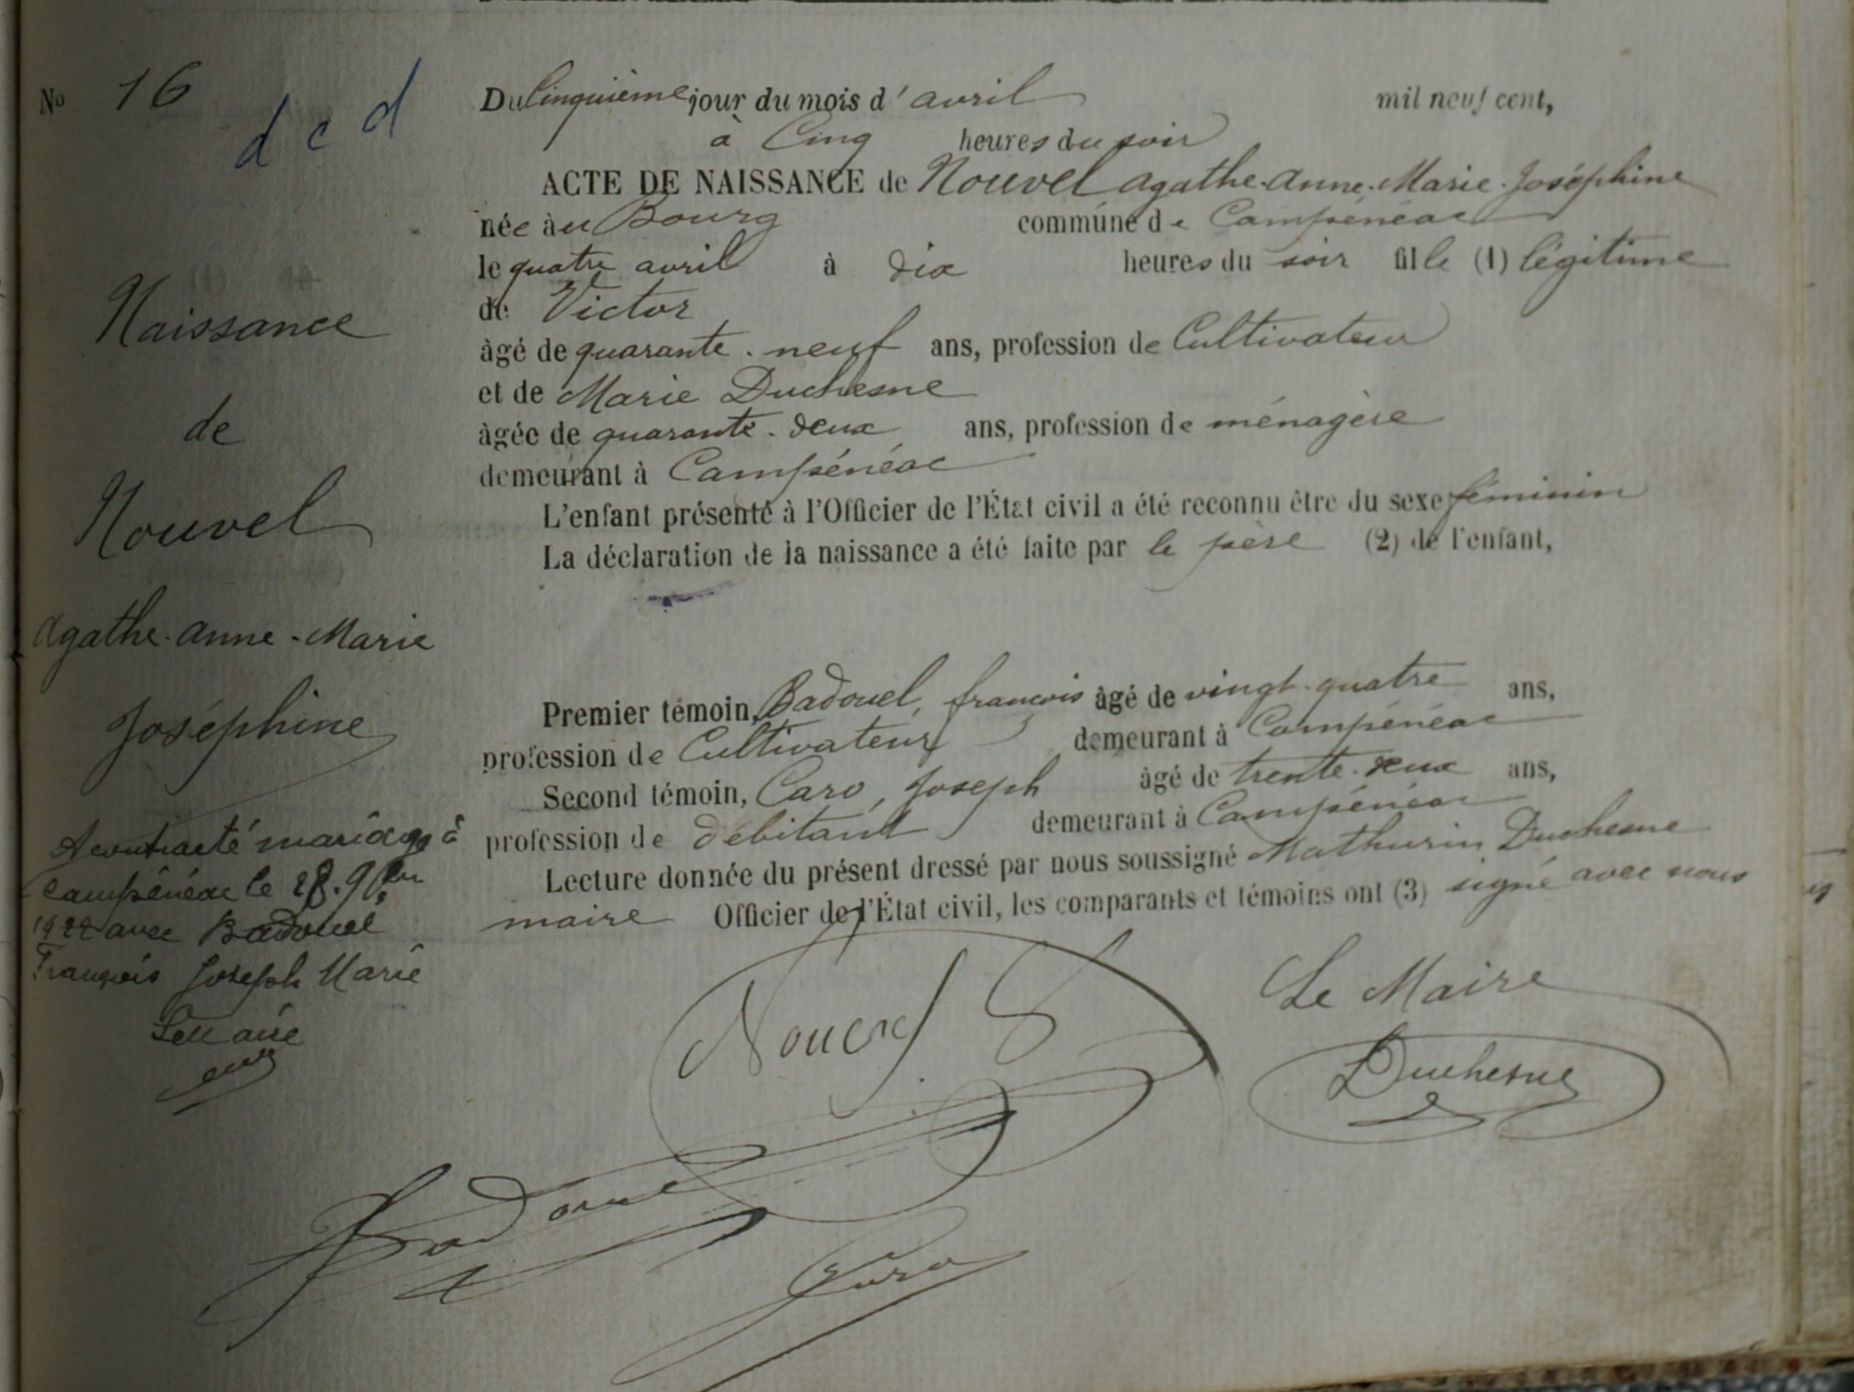 No 16
d c d
Naissance
de
Nouvel
Agathe-Anne-Marie
Joséphine
A contracté mariage à
Campénéac le 28.9bre
1922 avec Badouel
François Joseph Marie
Le Maire
Du Cinquième jour du mois d'avril mil neuf cent,
à Cinq heures du soir
ACTE DE NAISSANCE de Nouvel Agathe-Anne-Marie-Joséphine
née au Bourg commune de Campénéac
le quatre avril à dix heures du soir fille (1) légitime
de Victor
âgé de quarante-neuf ans, profession de Cultivateur
et de Marie Duchesne
âgée de quarante-deux ans, profession de ménagère
demeurant à Campénéac
L'enfant présenté à l'Officier de l'État civil a été reconnu être du sexe féminin
La déclaration de la naissance a été faite par le père (2) de l'enfant,
Premier témoin, Badouel, françois âgé de vingt-quatre ans,
profession de Cultivateur demeurant à Campénéac
Second témoin, Caro, Joseph âgé de trente-deux ans,
profession de débitant demeurant à Campénéac
Lecture donnée du présent dressé par nous soussigné Mathurin Duchesne
maire Officier de l'État civil, les comparants et témoins ont (3) signé avec nous
Le Maire
Nouvel
Duchesne
Badouel
Caro